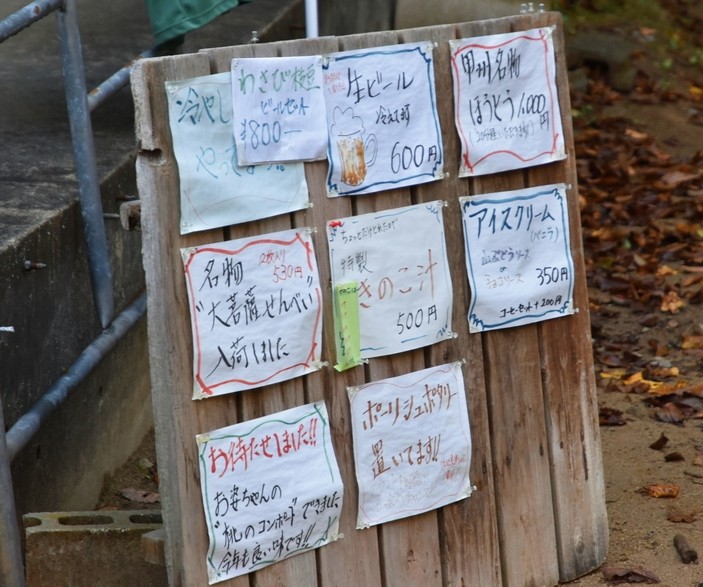 冷やし
わさび
ビールセット
¥800—
生ビール
冷えてます
600円
甲州名物
ほうとう1,000円
名物
2枚入り
530円
"大菩薩せんべい"
入荷しました
ちょっとだけとれたので
特製
きのこ汁
500円
アイスクリーム
(バニラ)
山ぶどうソース
の
チョコソース
350円
コーヒーセット+200円
お待たせしました!!
お婆ちゃんの
"桃のコンポート"できました
今年も良い味です!!
ポーリッシュポタリー
置いてます!!